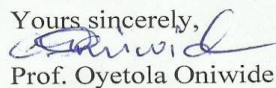 Yours sincerely,
Prof. Oyetola Oniwide